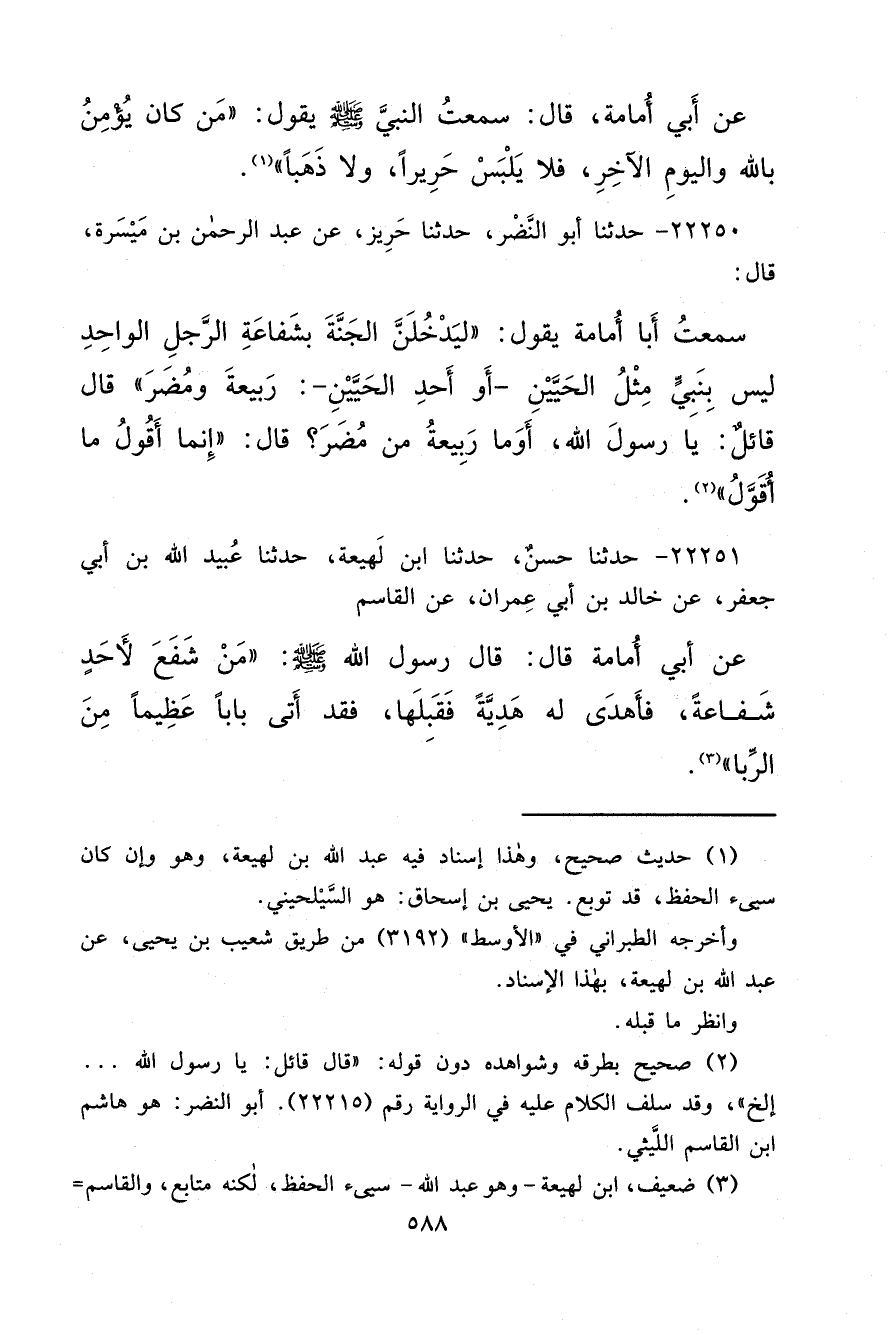 عن أَبي أُمامة، قال: سمعتُ النبيَّ ﷺ يقول: «مَن كان يُؤْمِنُ
بالله واليومِ الآخِرِ، فلا يَلْبَسْ حَرِيراً، ولا ذَهَباً»(١).
٢٢٢٥٠- حدثنا أبو النَّضْر، حدثنا حَرِيز، عن عبد الرحمٰن بن مَيْسَرة،
قال:
سمعتُ أَبا أُمامة يقول: «ليَدْخُلَنَّ الجَنَّةَ بشَفاعَةِ الرَّجلِ الواحِدِ
ليس بِنَبِيٍّ مِثْلُ الحَيَّيْنِ -أَو أَحدِ الحَيَّيْنِ-: رَبيعةَ ومُضَرَ» قال
قائلٌ: يا رسولَ الله، أَوَما رَبِيعةُ من مُضَرَ؟ قال: «إِنما أَقُولُ ما
أُقَوَّلُ»(٢).
٢٢٢٥١- حدثنا حسنٌ، حدثنا ابن لَهيعة، حدثنا عُبيد الله بن أبي
جعفر، عن خالد بن أبي عِمران، عن القاسم
عن أبي أُمامة قال: قال رسول الله ﷺ: «مَنْ شَفَعَ لأَحَدٍ
شَـفـاعةً، فأَهدَى له هَدِيَّةً فَقَبِلَها، فقد أَتى باباً عَظِيماً مِنَ
الرِّبا»(٣).
(١) حديث صحيح، وهٰذا إسناد فيه عبد الله بن لهيعة، وهو وإن كان
سيىء الحفظ، قد توبع. يحيى بن إسحاق: هو السَّيْلحيني.
وأخرجه الطبراني في «الأوسط» (٣١٩٢) من طريق شعيب بن يحيى، عن
عبد الله بن لهيعة، بهٰذا الإسناد.
وانظر ما قبله.
(٢) صحيح بطرقه وشواهده دون قوله: «قال قائل: يا رسول الله ...
إلخ»، وقد سلف الكلام عليه في الرواية رقم (٢٢٢١٥). أبو النضر: هو هاشم
ابن القاسم اللَّيثي.
(٣) ضعيف، ابن لهيعة -وهو عبد الله- سيىء الحفظ، لٰكنه متابع، والقاسم=
٥٨٨